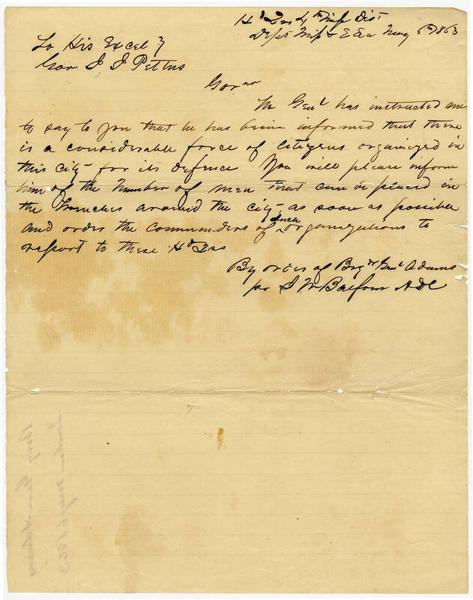 Hd Qrs 4th Mil Dist
Dept Miss & E La May 6th 1863
To His Excely
Gov J J Pettus
Govnr
The Genl has instructed me
to say to you that he has been informed that there
is a considerable force of Citizens organized in
this City for its defence You will please inform
him of the number of men that can be placed in
the trenches around the city as soon as possible
and order the commanders of such organizations to
report to these Hd Qrs
By order of Brig Genl Adams
per J W Balfour ADC